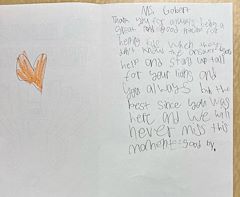 Ms. Gobert
Thank you for always being a
great and good mom for
being kid which away
dont know the answer you
help and stand up tall
for your lions and
you always be the
best since you was
here and we will
never miss this
moment good by.